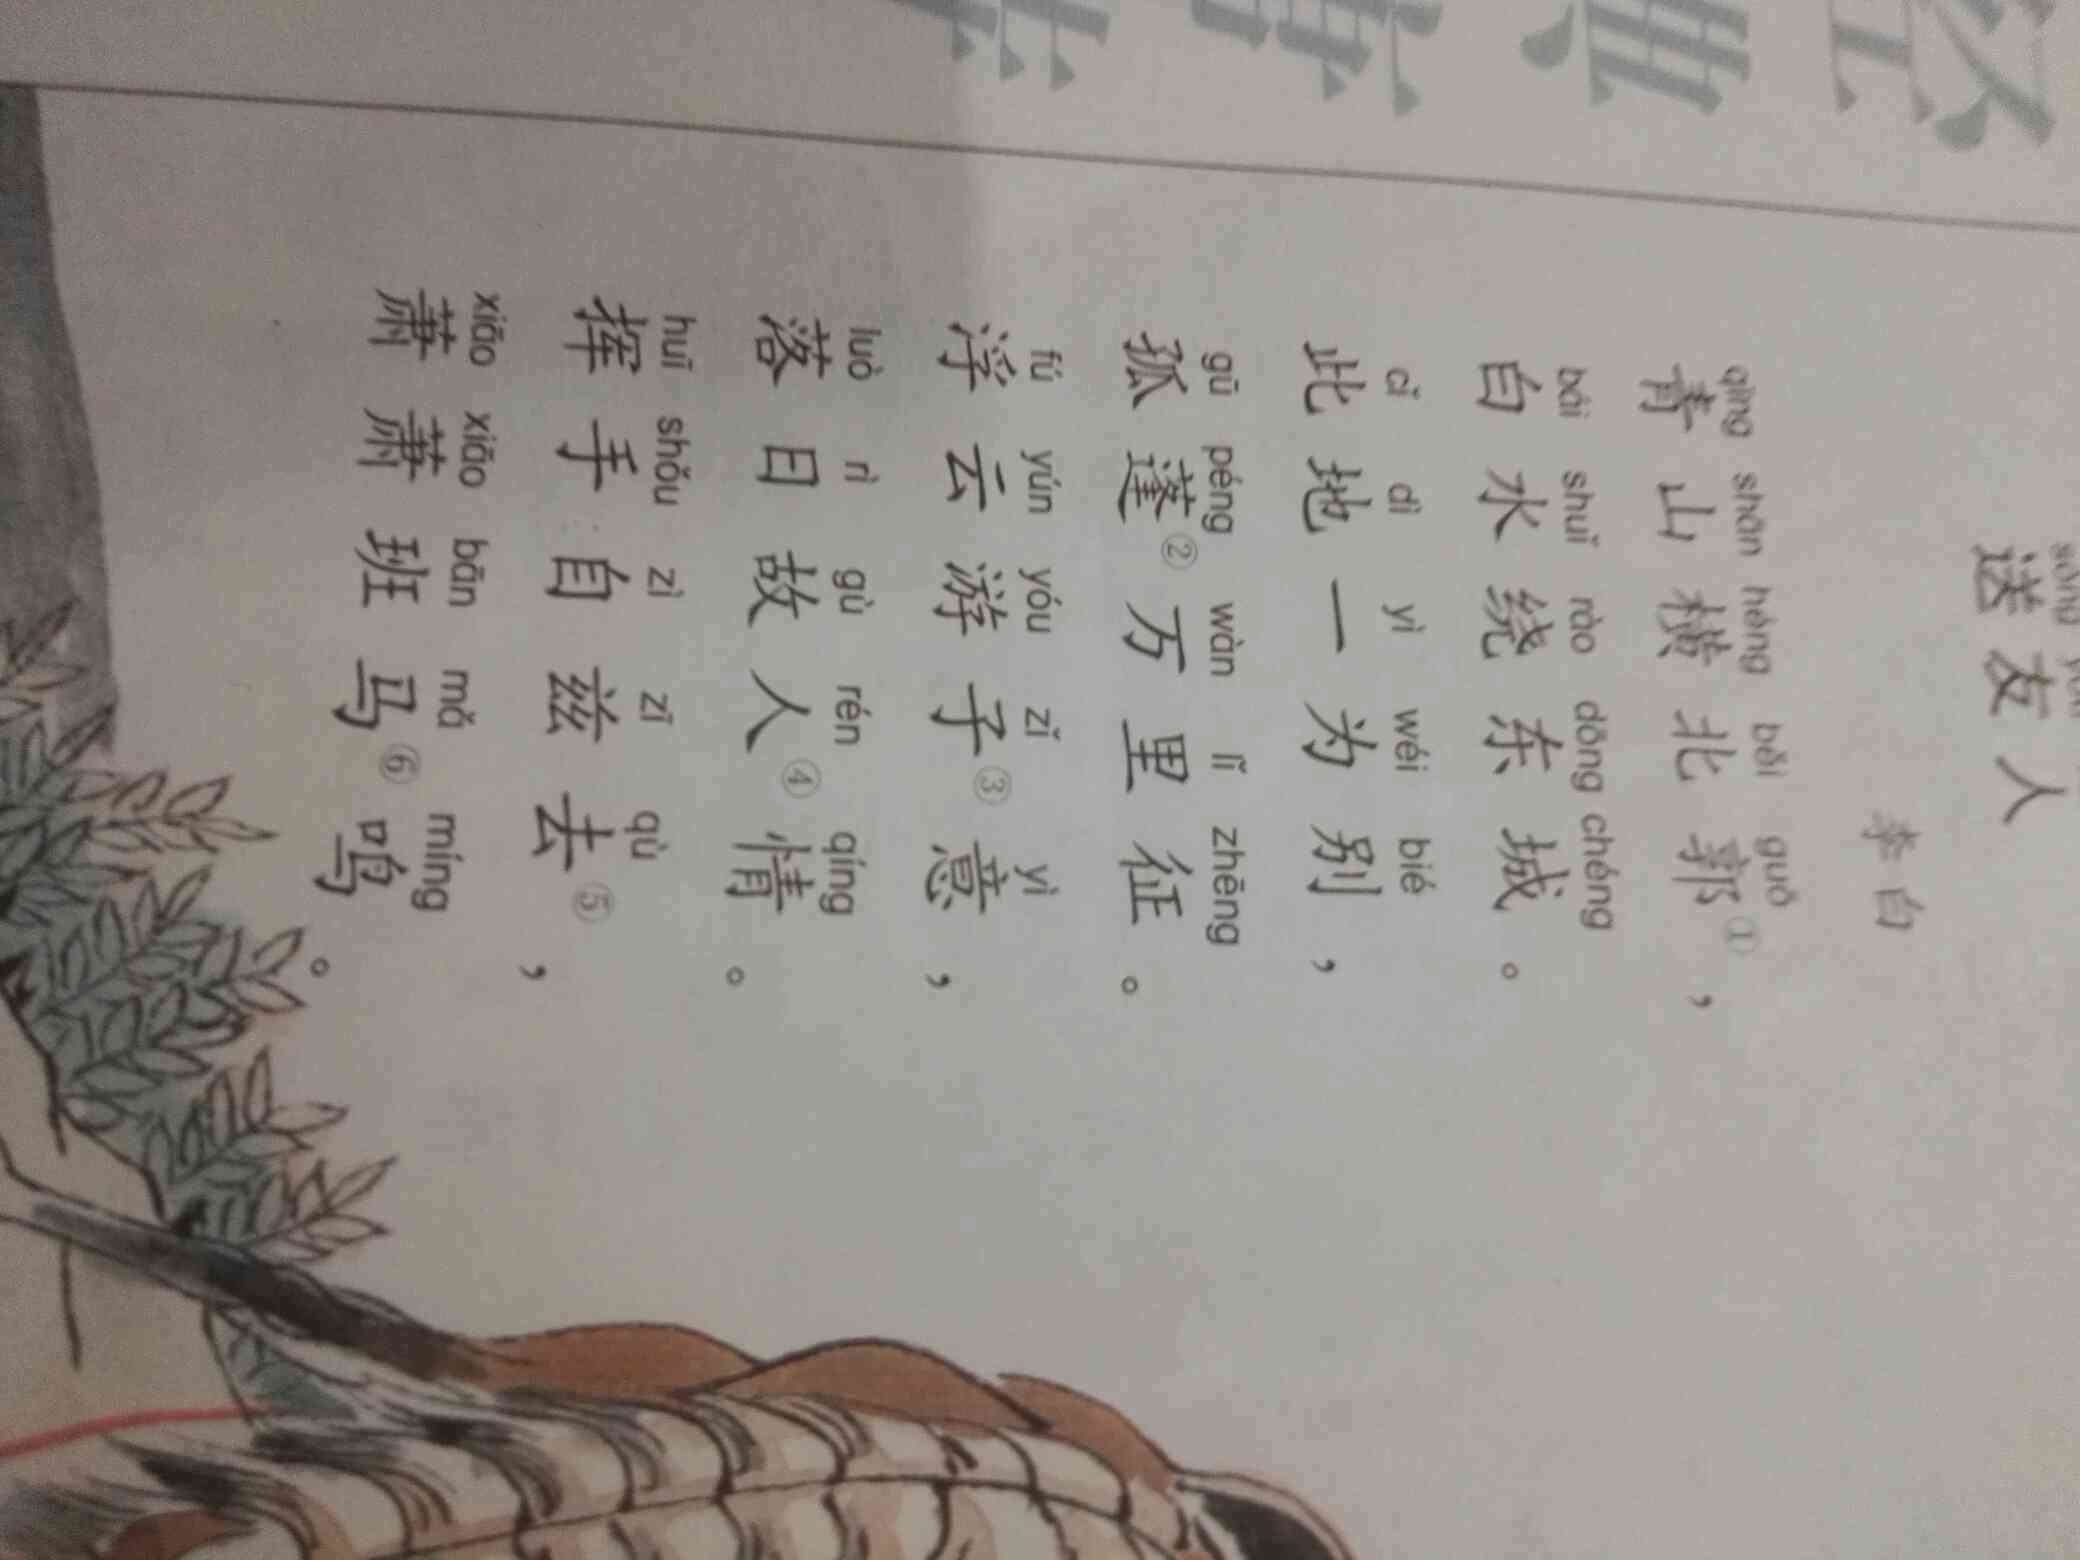 sòng
送友人
李白
qīng shān héng běi guō
青山横北郭①，
bái shuǐ rào dōng chéng
白水绕东城。
cǐ dì yì wéi bié
此地一为别，
gū péng wàn lǐ zhēng
孤蓬②万里征。
fú yún yóu zǐ yì
浮云游子③意，
luò rì gù rén qíng
落日故人④情。
huī shǒu zì zī qù
挥手自兹去⑤，
xiāo xiāo bān mǎ míng
萧萧班马⑥鸣。